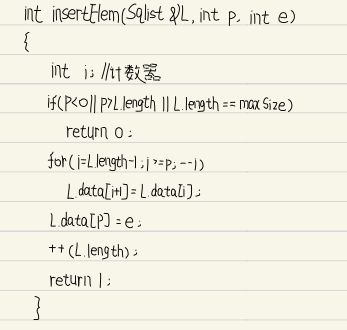 int insertElem(Sqlist &L, int p, int e)
{
int i; //计数器
if(p<0 || p>L.length || L.length == maxSize)
return 0;
for(i=L.length-1; i>=p; --i)
L.data[i+1] = L.data[i];
L.data[p] = e;
++(L.length);
return 1;
}